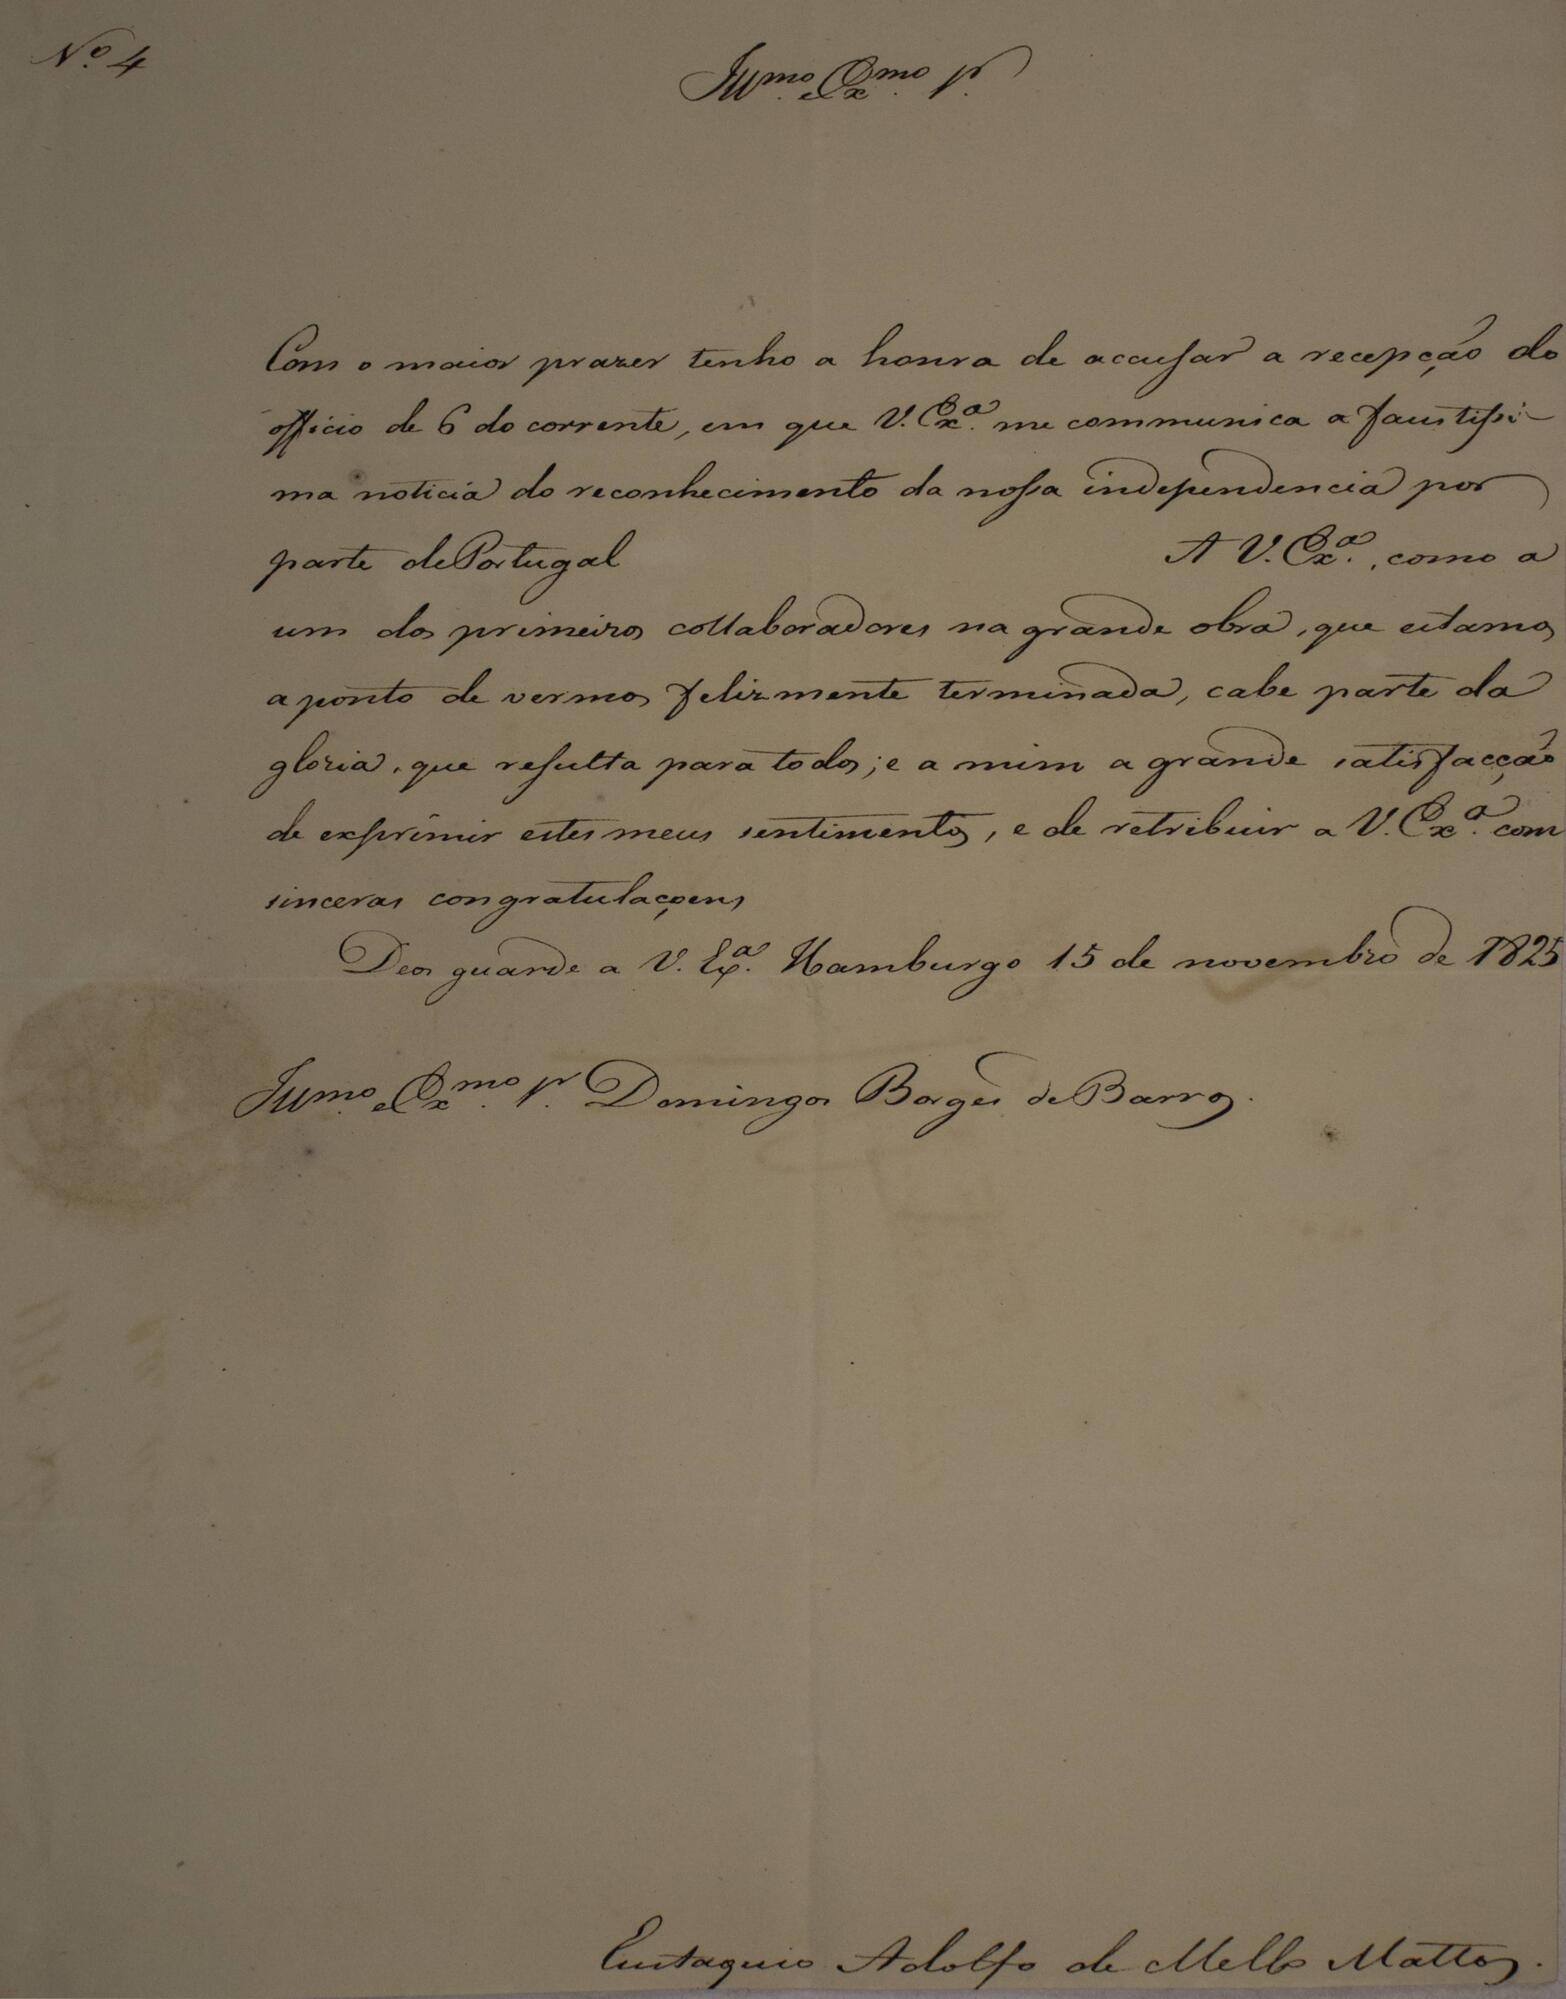 Nº 4
Illmo. e Exmo. Sr.
Com o maior prazer tenho a honra de accusar a recepção do
officio de 6 do corrente, em que V. Exª. me communica a faustissi-
ma noticia do reconhecimento da nossa independencia por
parte de Portugal A V. Exª., como a
um dos primeiros collaboradores na grande obra, que estamos
a ponto de vermos felizmente terminada, cabe parte da
gloria, que resulta para todos; e a mim a grande satisfacção
de exprimir estes meus sentimentos, e de retribuir a V. Exª. com
sinceras congratulaçoens
Deos guarde a V. Exª. Hamburgo 15 de novembro de 1825
Illmo. e Exmo. Sr. Domingos Borges de Barros.
Eustaquio Adolfo de Mello Mattos.